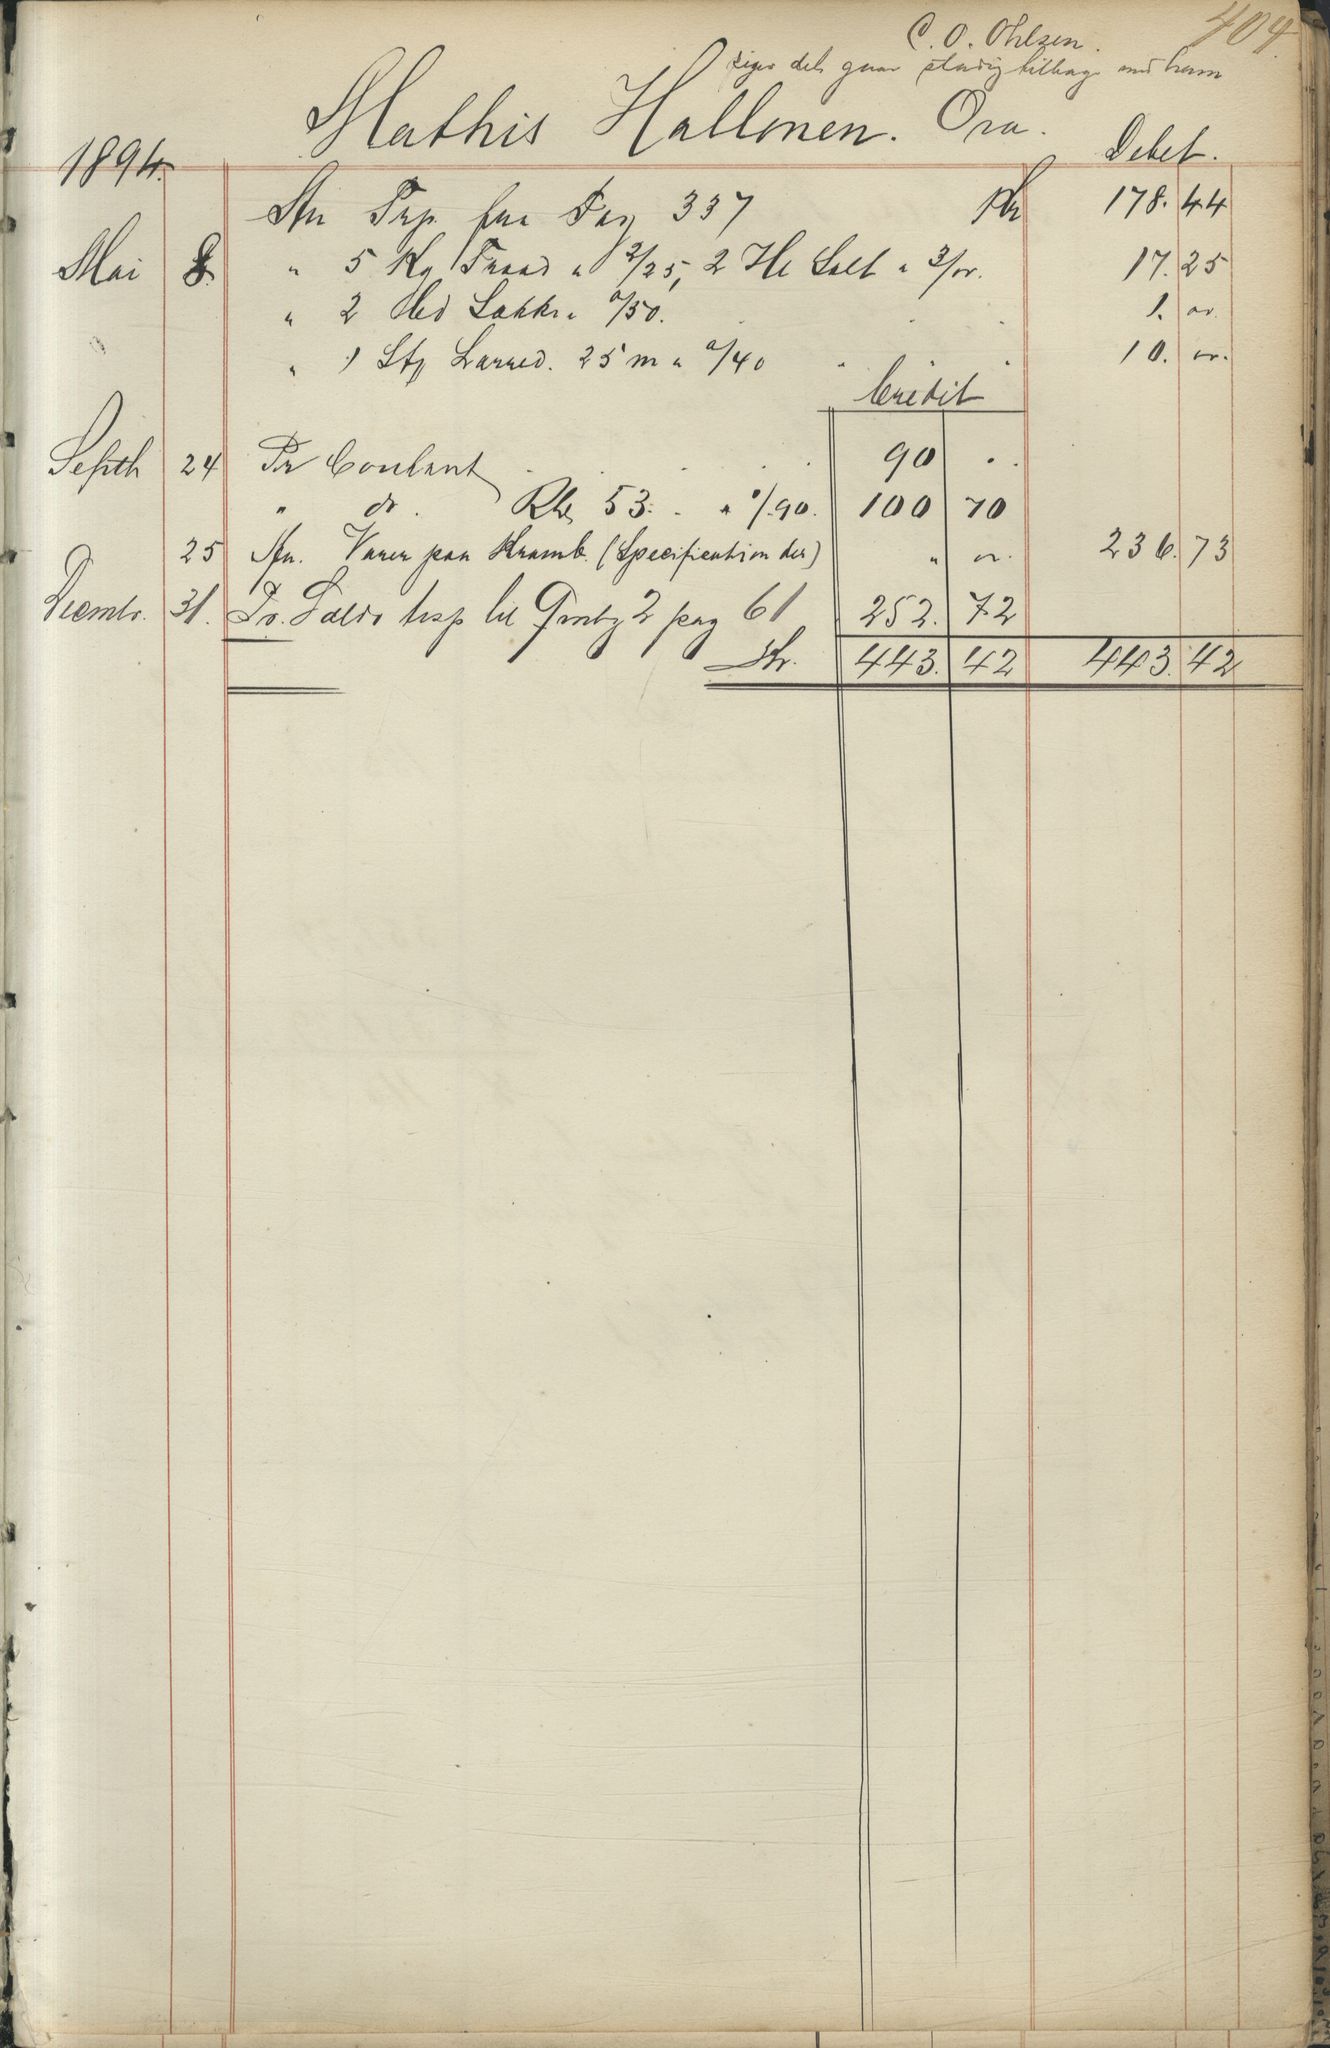 404.
C. O. Ohlsen.
siger det gaar stadig tilbage med ham
Mathis Hallonen. Ora.
1894. Debet.
An Trp. fra Pag 337 Kr 178. 44
Mai 8 " 5 Kg Traad a 2/25, 2 Hl Salt a 3/or. 17. 25
" 2 Sække a 0/50. 1. or.
" 1 Stk Lærred. 25 m a 0/40 10. or.
Credit
Septb 24 Pr Contant 90 . .
" do. Rbl 53. a 1/.90. 100 70
25 An. Varer paa Kramb. (Specification der) " or. 236. 73
Decmbr. 31. Pr. Saldo trsp til Protoc 2 pag 61 252. 72
Kr. 443. 42 443. 42